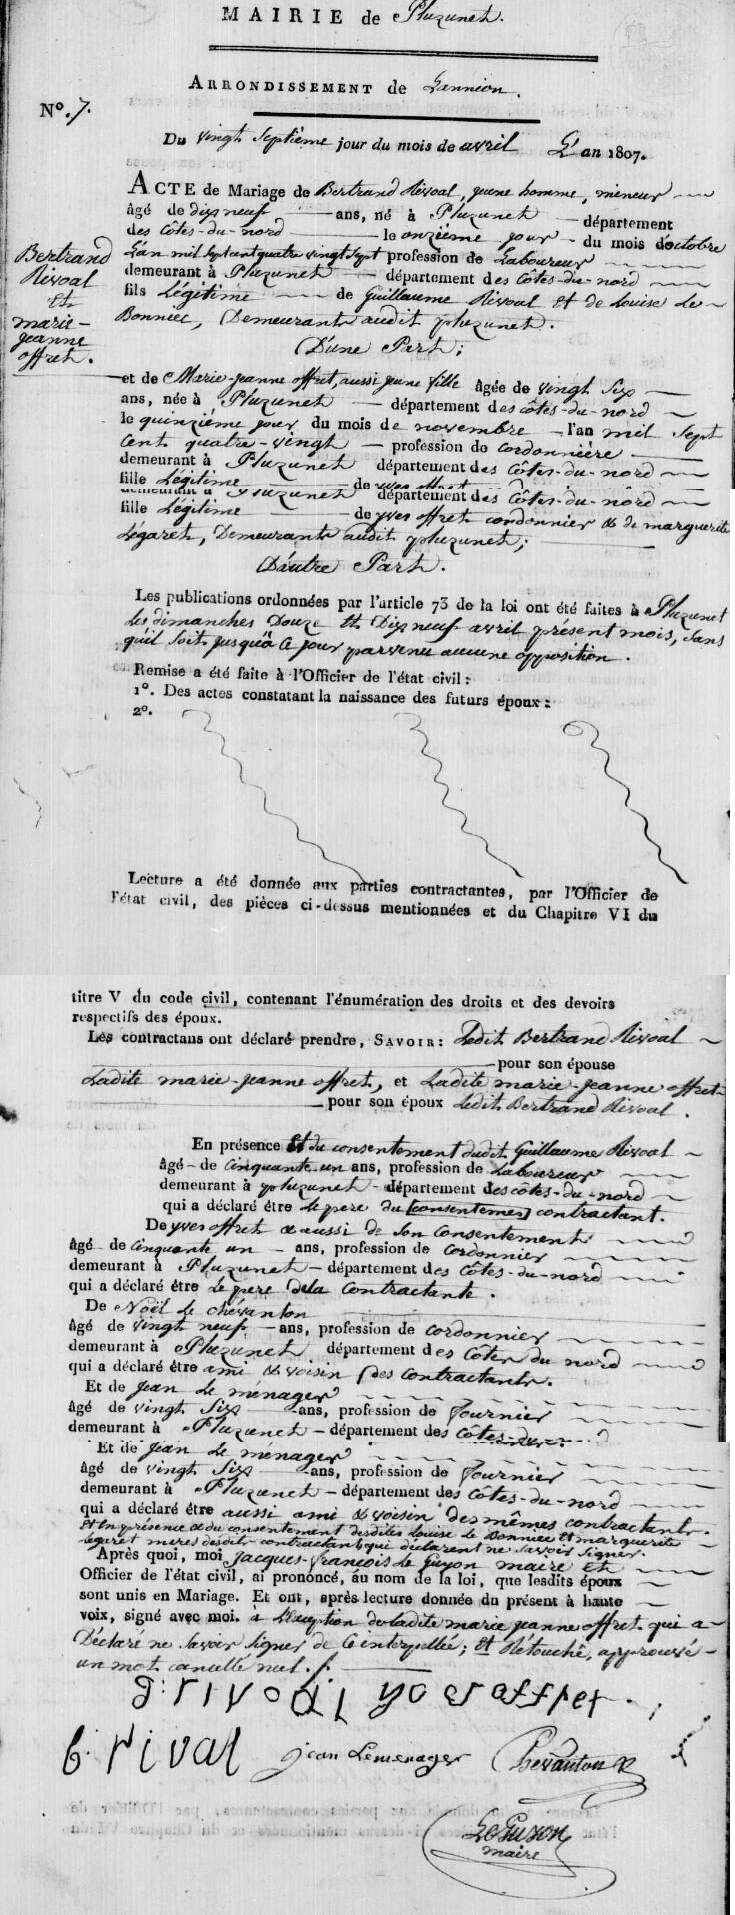 MAIRIE de Pluzunet.
ARRONDISSEMENT de Lannion.
N°. 7.
Du vingt Septième jour du mois de avril L'an 1807.
Bertrand
Rivoal
Et
marie-
jeanne
offret.
ACTE de Mariage de Bertrand Rivoal, jeune homme, mineur
âgé de dix neuf ans, né à Pluzunet département
des Côtes-du-nord le onzième jour du mois d'octobre
L'an mil Sept cent quatre vingt Sept profession de Laboureur
demeurant à Pluzunet département des Côtes-du-nord
fils Légitime de Guillaume Rivoal Et de Louise Le
Bonniec, Demeurants audit pluzunet.
D'une Part;
et de Marie-jeanne offret, aussi jeune fille âgée de vingt Six
ans, née à Pluzunet département des côtes-du-nord
le quinzième jour du mois de novembre l'an mil Sept
Cent quatre-vingt profession de Cordonnière
demeurant à Pluzunet département des Côtes-du-nord
fille Légitime de yves offret
demeurant à Pluzunet département des Côtes-du-nord
fille Légitime de yves offret cordonnier & de marguerite
Légaret, Demeurants audit pluzunet;
D'autre Part.
Les publications ordonnées par l'article 73 de la loi ont été faites à Pluzunet
Les dimanches Douze Et Dix neuf avril présent mois, Sans
qu'il Soit jusqu'à Ce jour parvenu aucune opposition.
Remise a été faite à l'Officier de l'état civil :
1°. Des actes constatant la naissance des futurs époux :
2°.
Lecture a été donnée aux parties contractantes, par l'Officier de
l'état civil, des pièces ci-dessus mentionnées et du Chapitre VI du
titre V du code civil, contenant l'énumération des droits et des devoirs
respectifs des époux.
Les contractans ont déclaré prendre, SAVOIR: Ledit Bertrand Rivoal
pour son épouse
Ladite marie-jeanne offret, et Ladite marie-jeanne offret
pour son époux Ledit Bertrand Rivoal.
En présence Et du consentement dudit Guillaume Rivoal
âgé de Cinquante-un ans, profession de Laboureur
demeurant à pluzunet département des côtes-du-nord
qui a déclaré être le pere du [consentemen] contractant.
De yves offret & aussi de Son Consentement
âgé de Cinquante un ans, profession de Cordonnier
demeurant à Pluzunet département des Côtes-du-nord
qui a déclaré être Le pere de la Contractante.
De Noël Le Chévanton
âgé de vingt neuf ans, profession de cordonnier
demeurant à Pluzunet département des Côtes du nord
qui a déclaré être ami & voisin des contractants.
Et de Jean Le ménager
âgé de vingt Six ans, profession de fournier
demeurant à Pluzunet département des Côtes-du-
Et de Jean Le ménager
âgé de vingt Six ans, profession de fournier
demeurant à Pluzunet département des Côtes-du-nord
qui a déclaré être aussi ami & voisin des mêmes contractants.
Et En présence & du consentement desdites Louise Le Bonniec Et marguerite
Légaret meres desdits contractants qui déclarent ne Savoir Signer.
Après quoi, moi Jacques-françois Le Guyon maire Et
Officier de l'état civil, ai prononcé, au nom de la loi, que lesdits époux
sont unis en Mariage. Et ont, après lecture donnée du présent à haute
voix, signé avec moi. à L'Exception de ladite marie jeanne offret qui a
Déclaré ne Savoir Signer de Ce interpellée; Et Retouché, approuvé
un mot cancellé nul.
g: rivoal yves offret.
b. rival jean Lemenager Chevanton
Le Guyon
maire